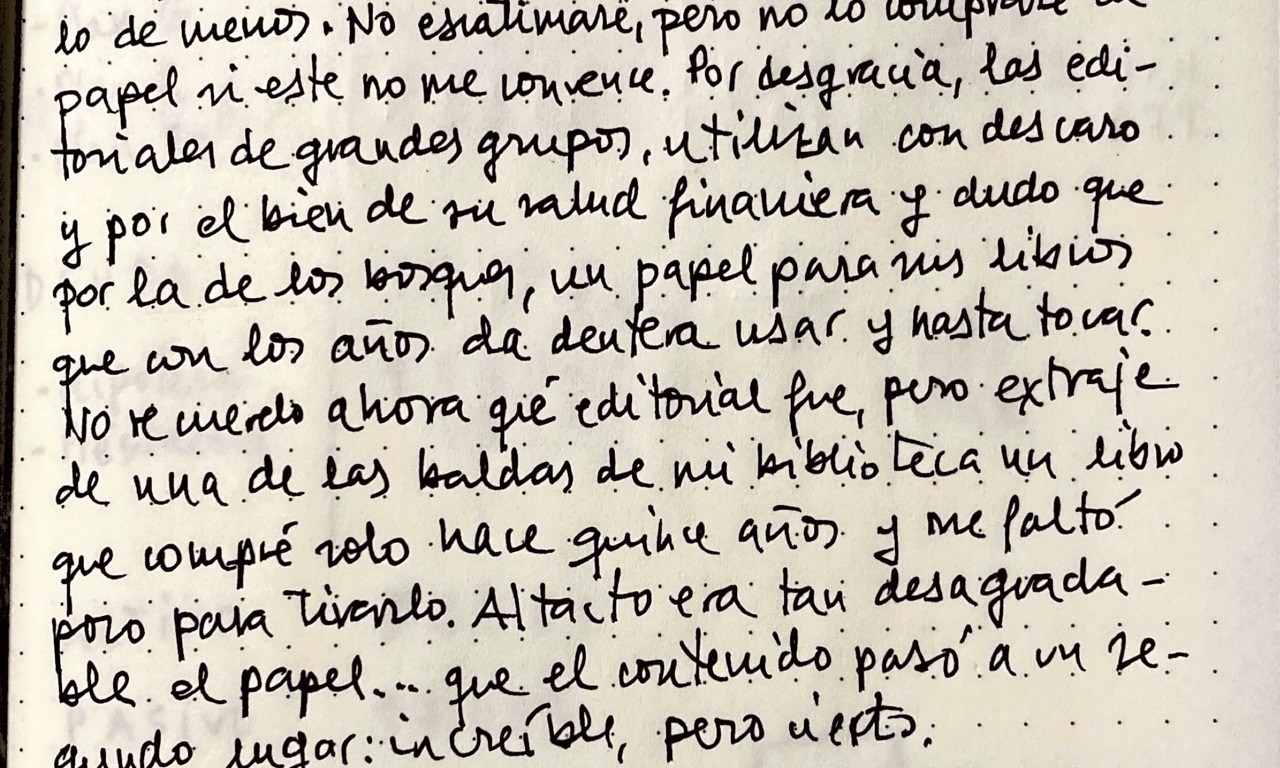 lo de menos. No escatimaré, pero no lo compraré en
papel si este no me convence. Por desgracia, las edi-
toriales de grandes grupos, utilizan con descaro
y por el bien de su salud financiera y dudo que
por la de los bosques, un papel para sus libros
que con los años da dentera usar y hasta tocar.
No recuerdo ahora qué editorial fue, pero extraje
de una de las baldas de mi biblioteca un libro
que compré solo hace quince años y me faltó
poco para tirarlo. Al tacto era tan desagrada-
ble el papel... que el contenido pasó a un se-
gundo lugar: increíble, pero cierto.